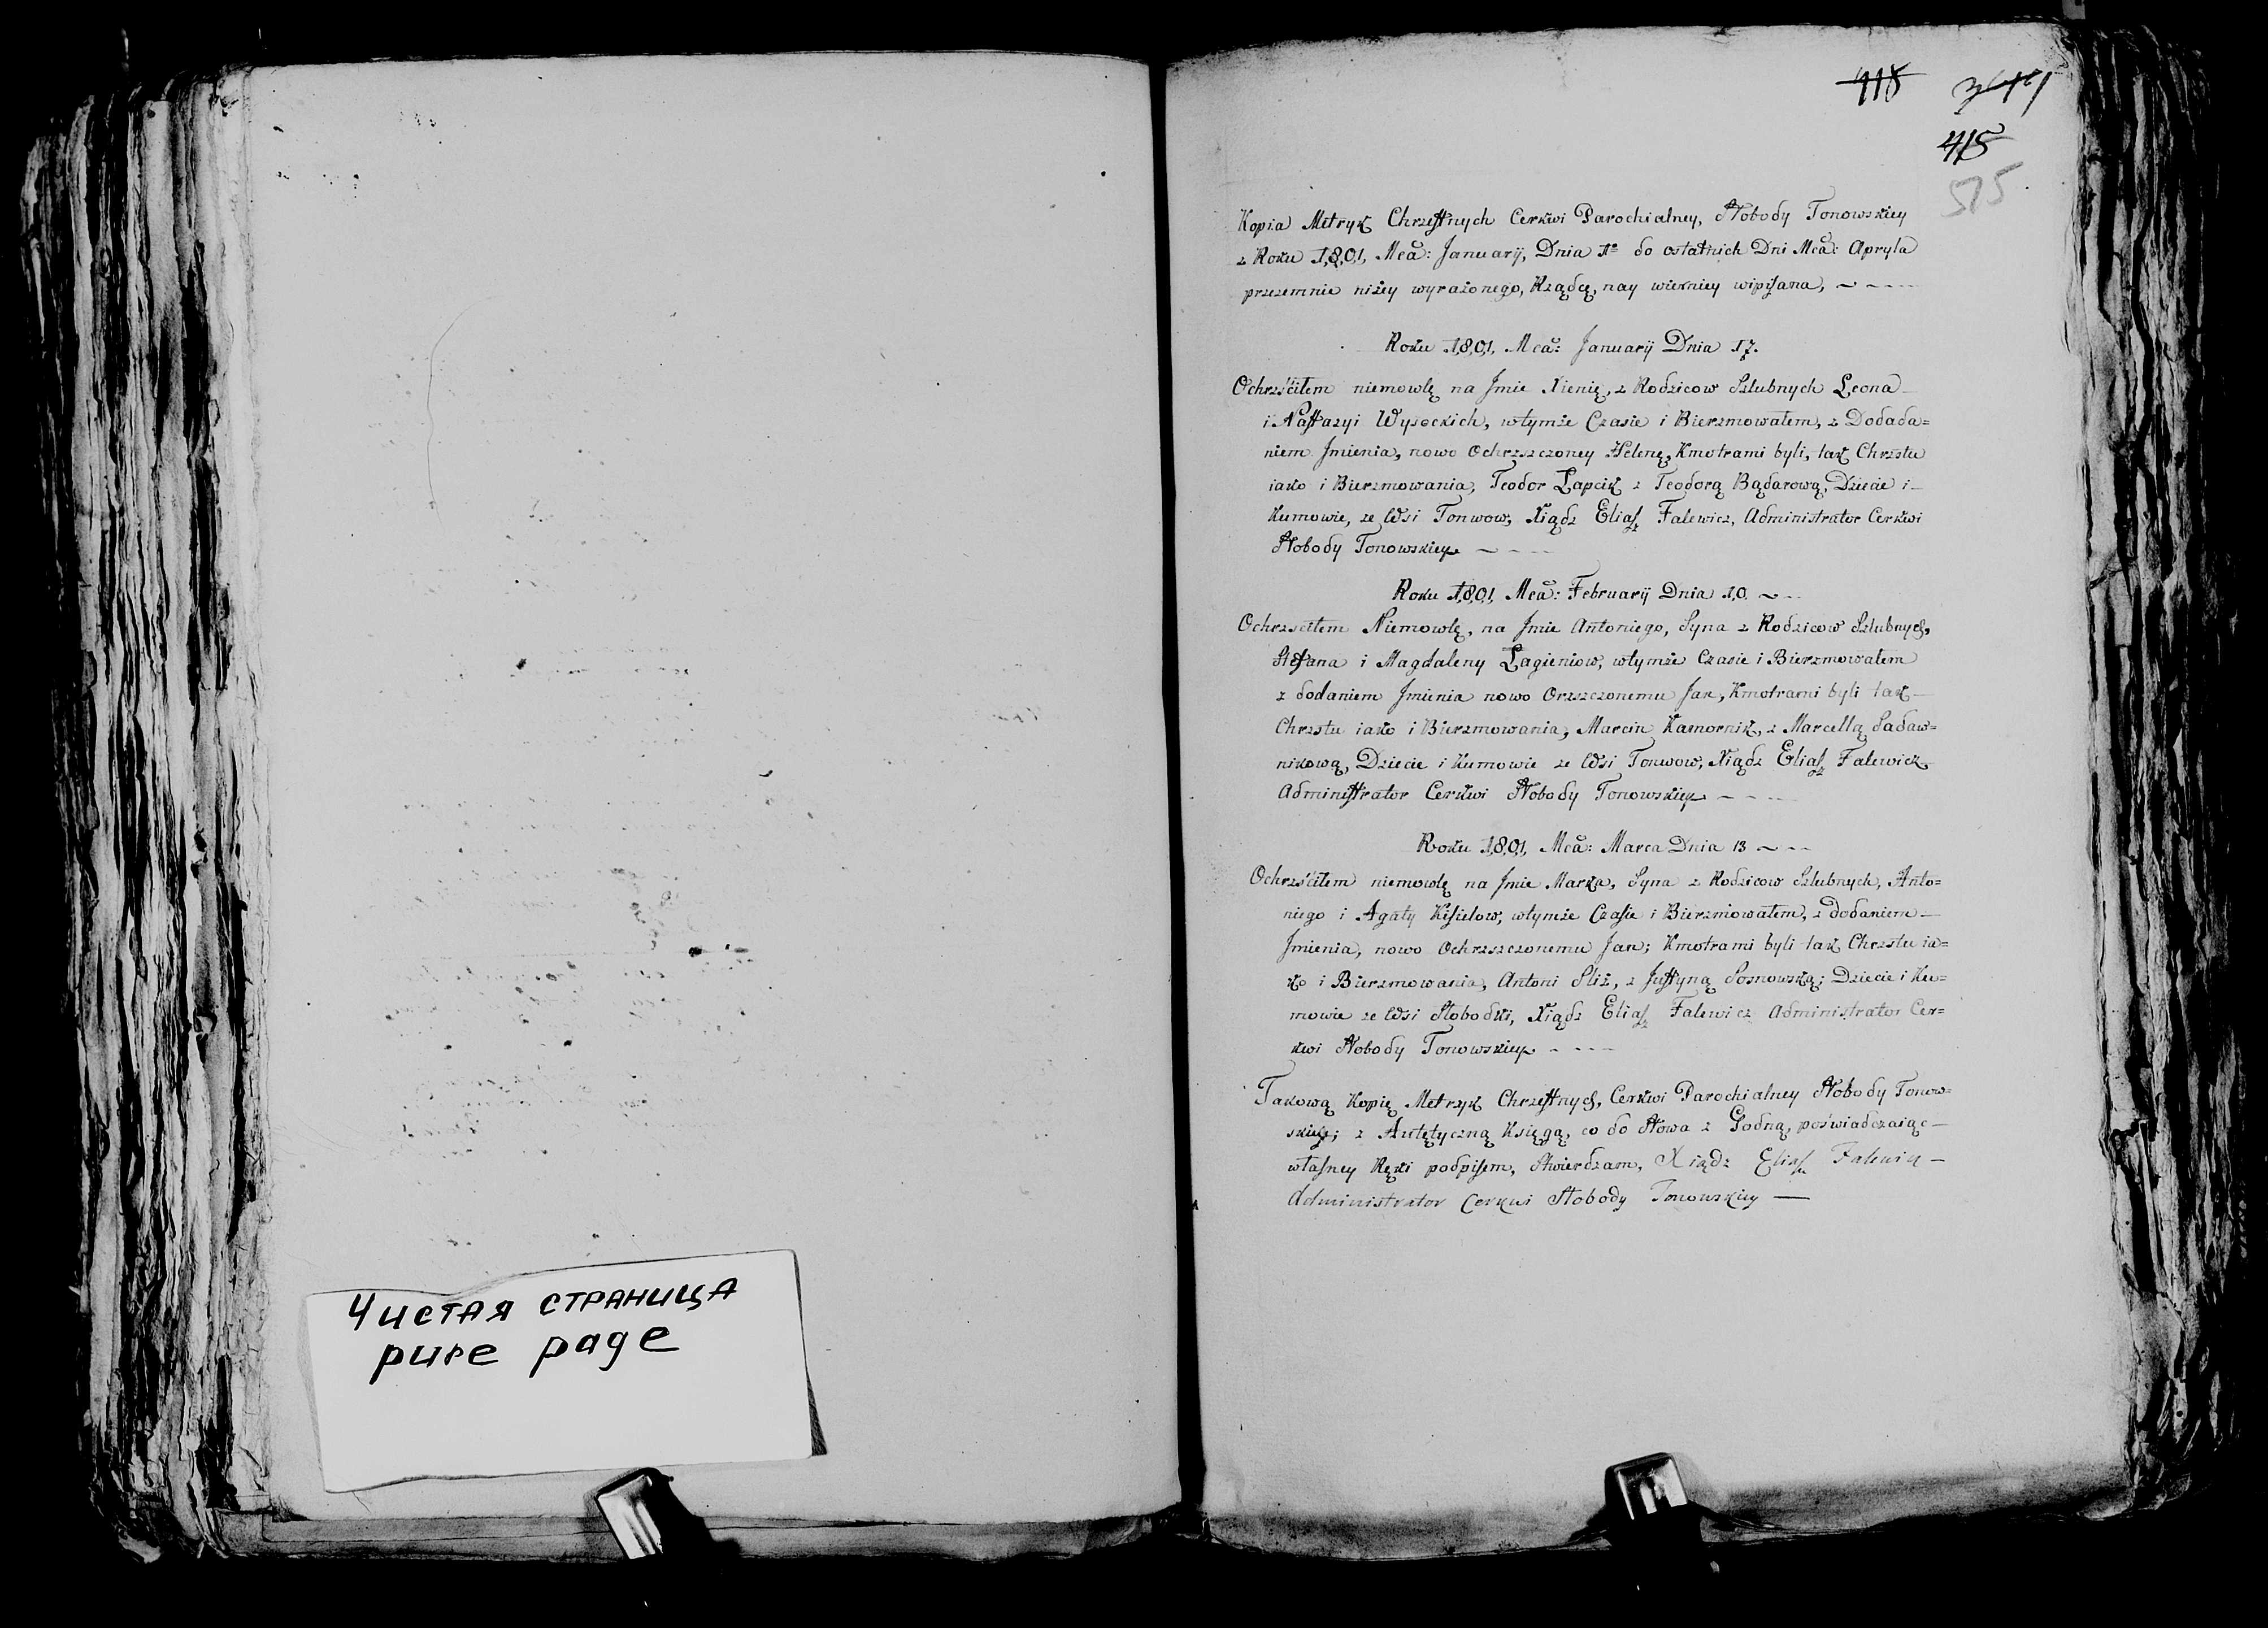 Чистая страница
pure page
418
415
575
Kopia Metryk Chrzestnych Cerkwi Parochialney, Słobody Tonowskiey
z Roku 1801, Mcă: Januarij, Dnia 1º do ostatnich Dni Mcă: Apryla
przezemnie niżey wyrażonego, Rządcę, nay wierniey wipisana,
Roku 1801, Mcă: Januarij Dnia 17.
Ochrzściłem niemowlę na Jmie Xienię, z Rodzicow Szlubnych Leona
i Nastazyi Wysockich, wtymże Czasie i Bierzmowałem, z Dodada=
niem Jmienia, nowo Ochrzszczoney Helenę, Kmotrami byli, tak Chrzstu
iako i Bierzmowania, Teodor Łapcik z Teodorą Bądarową, Dziecie i
Kumowie, ze Wsi Tonwow, Xiądz Eliasz Falewicz, Administrator Cerkwi
Słobody Tonowskiey
Roku 1801, Mcă: Februarij Dnia 10.
Ochrzsciłem Niemowlę, na Jmie Antoniego, Syna z Rodzicow Szlubnych,
Stefana i Magdaleny Łagieniow, wtymże Czasie i Bierzmowałem
z dodaniem Jmienia nowo Orzszczonemu Jan, Kmotrami byli tak
Chrzstu iako i Bierzmowania, Marcin Kamornik, z Marcellą Sadaw=
nikową, Dziecie i Kumowie ze Wsi Tonwow, Xiądz Eliasz Falewicz
Administrator Cerkwi Słobody Tonowskiey
Roku 1801, Mcă: Marca Dnia 13
Ochrzściłem niemowlę na Jmie Marka, Syna z Rodzicow Szlubnych, Anto=
niego i Agaty Kisielow, wtymże Czasie i Bierzmowałem, z dodaniem
Jmienia, nowo Ochrzszczonemu Jan; Kmotrami byli tak Chrzstu ia=
ko i Bierzmowania, Antoni Sliż, z Justyną Sosnowską; Dziecie i Ku=
mowie ze Wsi Słobodki, Xiądz Eliasz Falewicz Administrator Cer=
kwi Słobody Tonowskiey
Takową Kopię Metrzyk Chrzestnych, Cerkwi Parochialney Słobody Tonow=
skiey; z Autętyczną Księgą, co do słowa z Godną, poświadczaiąc
własney Ręki podpisem, stwierdzam, Xiądz Eliasz Falewicz
Administrator Cerkwi Słobody Tonowskiey